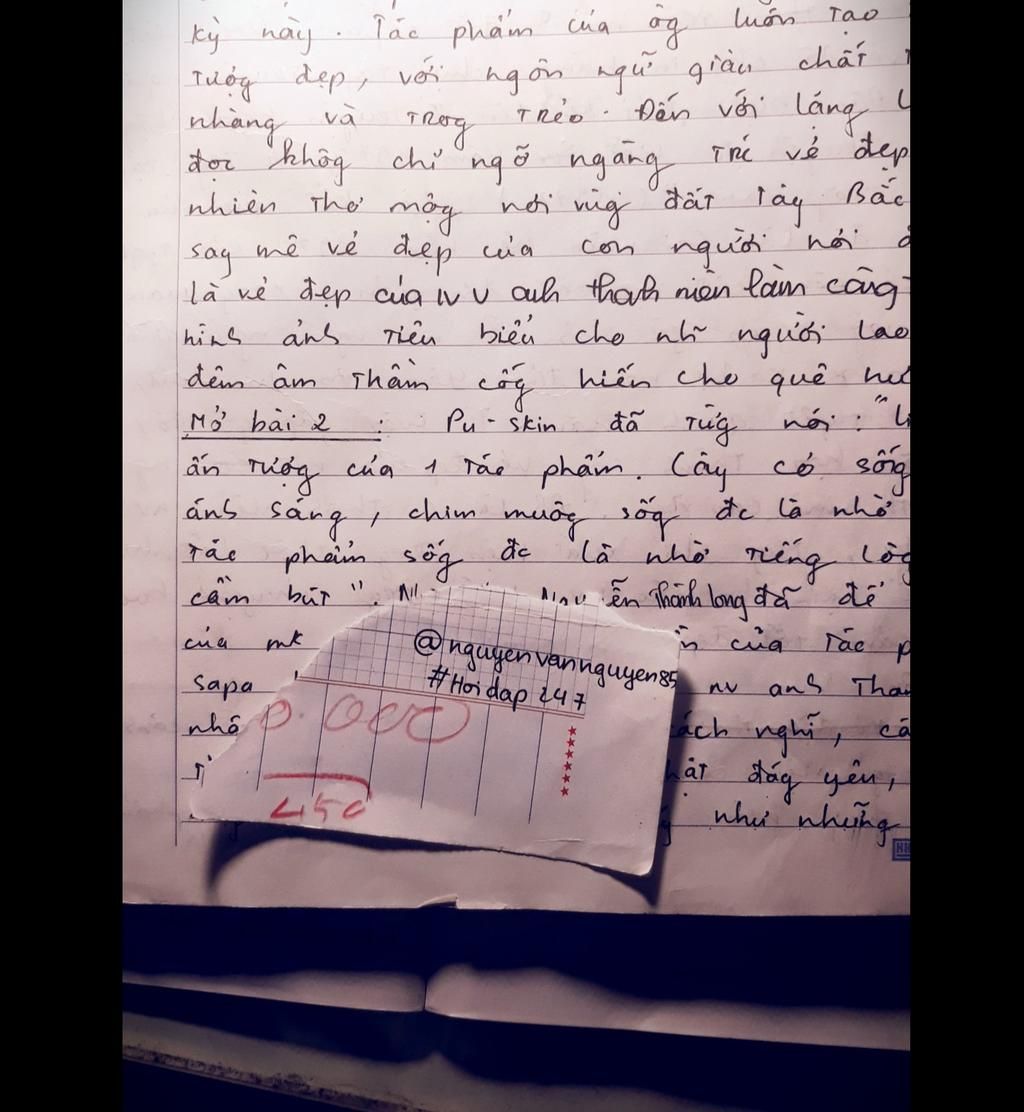 kỳ này. Tác phẩm của ôg luôn tạo
tượg đẹp, với ngôn ngữ giàu chất
nhàng và trog trẻo. Đến với lặng
đọc khôg chỉ ngỡ ngàng trc vẻ đẹp
nhiên thơ mộg nơi vùg đất Tây Bắc
say mê vẻ đẹp của con người nơi
là vẻ đẹp của nv anh thanh niên làm côg
hình ảnh tiêu biểu cho nhữ người lao
đêm âm thầm cốg hiến cho quê
Mở bài 2 : Pu-skin đã từg nói: "
ấn tượg của 1 tác phẩm. Cây có sốg
ánh sáng, chim muôg sốg đc là nhờ
tác phẩm sốg đc là nhờ tiếng lòg
cầm bút". Thành long đã để
của mk của tác
sapa nv anh
nhỏ cách nghĩ,
đág yêu,
như những
@nguyenvannguyen85
#Hoidap247
450